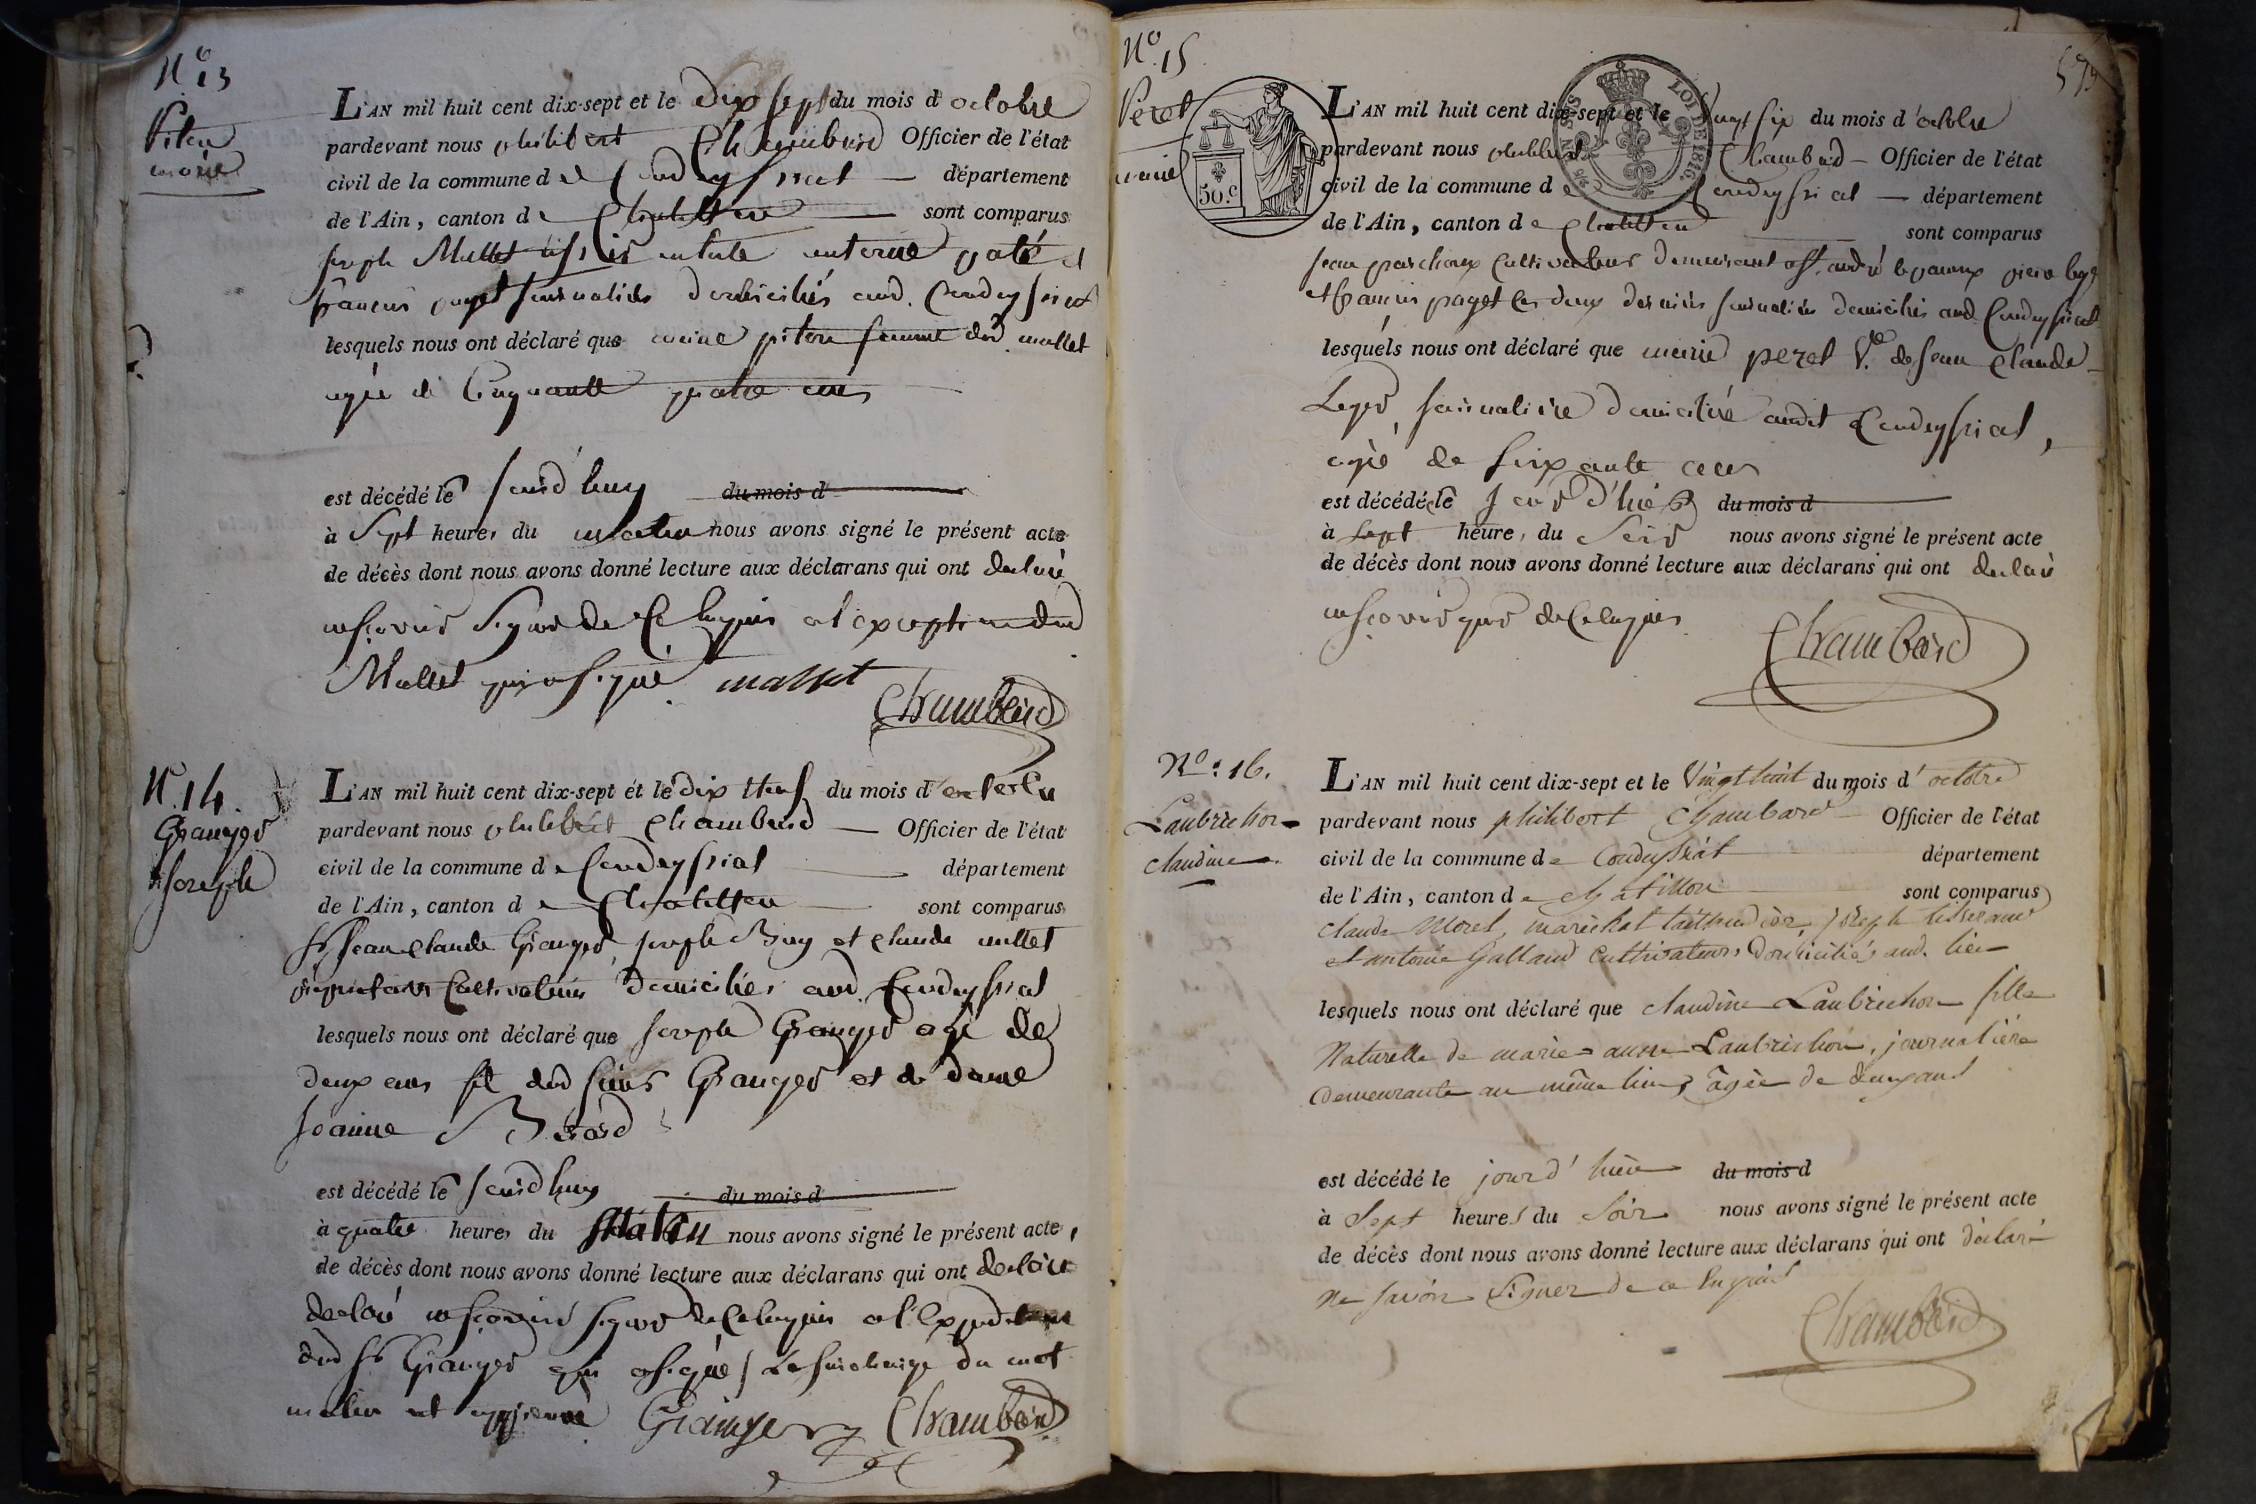 N.o 13
Piton
marie
L'AN mil huit cent dix-sept et le dix sept du mois d'octobre
pardevant nous philibert Chambard Officier de l'état
civil de la commune de Condeyssiat département
de l'Ain, canton de Chatillon sont comparus
joseph Mallet antoine et
françois paget journaliers domiciliés aud. Condeyssiat
lesquels nous ont déclaré que marie piton femme dud. mallet
agée de Cinquante quatre ans
est décédé le jourd'huy du mois d
à Sept heures du matin nous avons signé le présent acte
de décès dont nous avons donné lecture aux déclarans qui ont declaré
ne scavoir signer de Ce enquis a l'exception dud
Mallet qui a signé. mallet
Chambard
N.o 14.
Granger
joseph
L'AN mil huit cent dix-sept et le dix neuf du mois d'octobre
pardevant nous philibert Chambard Officier de l'état
civil de la commune de Condeyssiat département
de l'Ain, canton de Chatillon sont comparus
Sr jean Claude Granger, joseph Buy et Claude millet
propriétaires Cultivateurs domiciliés aud. Condeyssiat
lesquels nous ont déclaré que joseph Granger agé de
deux ans fils dud sieur Granger et de dame
joanne Berard
est décédé le jourd'huy du mois d
à quatre heures du Matin nous avons signé le présent acte,
de décès dont nous avons donné lecture aux déclarans qui ont declaré
declaré ne scavoir signer de Ce enquis a l'exception
dud Sr Granger qui a signé / La surcharge du mot
matin est approuvé Granger Chambard
N.o 15
Peret
marie
50 c.
LOI DE 1816.
579
L'AN mil huit cent dix-sept et le vingt six du mois d'octobre
pardevant nous philibert Chambard Officier de l'état
civil de la commune de Condeyssiat département
de l'Ain, canton de Chatillon sont comparus
jean cultivateur demeurant a St. andré
et francois paget les deux derniers journaliers domiciliés aud. Condeyssiat
lesquels nous ont déclaré que marie peret Ve. de jean Claude
Leger, journaliere domiciliée audit Condeyssiat,
agée de soixante ans
est décédé le jour d'hier du mois d
à sept heure, du Soir nous avons signé le présent acte
de décès dont nous avons donné lecture aux déclarans qui ont declaré
ne scavoir signer de Ce enquis
Chambard
No. 16.
Laubrichon
claudine
L'AN mil huit cent dix-sept et le Vingt huit du mois d'octobre
pardevant nous philibert Chambard Officier de l'état
civil de la commune de Condeyssiat département
de l'Ain, canton de chatillon sont comparus
claude Morel, maréchal taillandier, joseph tisserand
et antoine Galland cultivateurs domiciliés aud. lieu
lesquels nous ont déclaré que claudine Laubrichon fille
Naturelle de marie-anne Laubrichon, journalière
demeurante au même lieu, âgée de deux ans
est décédé le jour d'hier du mois d
à Sept heures du Soir nous avons signé le présent acte
de décès dont nous avons donné lecture aux déclarans qui ont déclaré
ne savoir Signer de ce enquis
Chambard